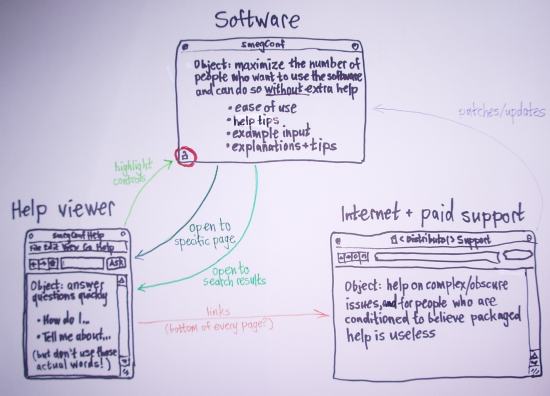 Software
smegConf
Object: maximize the number of
people who want to use the software
and can do so without extra help
• ease of use
• help tips
• example input
• explanations + tips
patches/updates
highlight
controls
Help viewer
smegConf Help
File Edit View Go Help
Ask
Object: answer
questions quickly
• How do I...
• Tell me about...
(but don't use those
actual words!)
open to
specific page
open to
search results
links
(bottom of every page?)
Internet + paid support
<Distributor> Support
Object: help on complex/obscure
issues, and for people who are
conditioned to believe packaged
help is useless